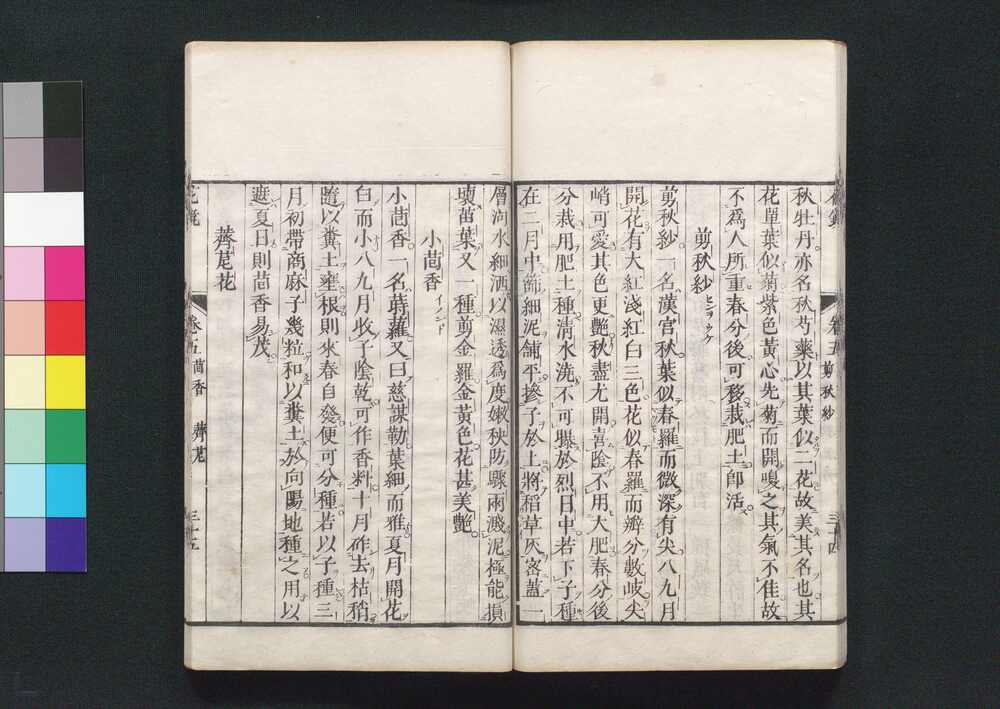 秋牡丹亦名秋芍藥以其葉似二花故美其名也其
花單葉似菊紫色黃心先菊而開嗅之其氣不佳故
不爲人所重春分後可移栽肥土卽活
剪秋紗
剪秋紗一名漢宮秋葉似春羅而微深有尖八九月
開花有大紅淺紅白三色花似春羅而瓣分數岐尖
峭可愛其色更艷秋盡尤開喜陰不用大肥春分後
分栽用肥土種淸水洗不可曝於烈日中若下子種
在二月中篩細泥舖平摻子於上將稻草灰密蓋一
卷五 剪秋紗
三十四
層河水細洒以濕透爲度嫩秧防驟雨濺泥極能損
壞苗葉又一種剪金羅金黃色花甚美艷
小茴香 イノンド
小茴香一名蒔蘿又曰慈謀勒葉細而雅夏月開花
白而小八九月收子陰乾可作香料十月斫去枯稍
隨以糞土壅根則來春自發便可分種若以子種三
月初帶商麻子幾粒和以糞土於向陽地種之用以
遮夏日則茴香易茂
薺苨花
卷五 茴香 薺苨
三十五